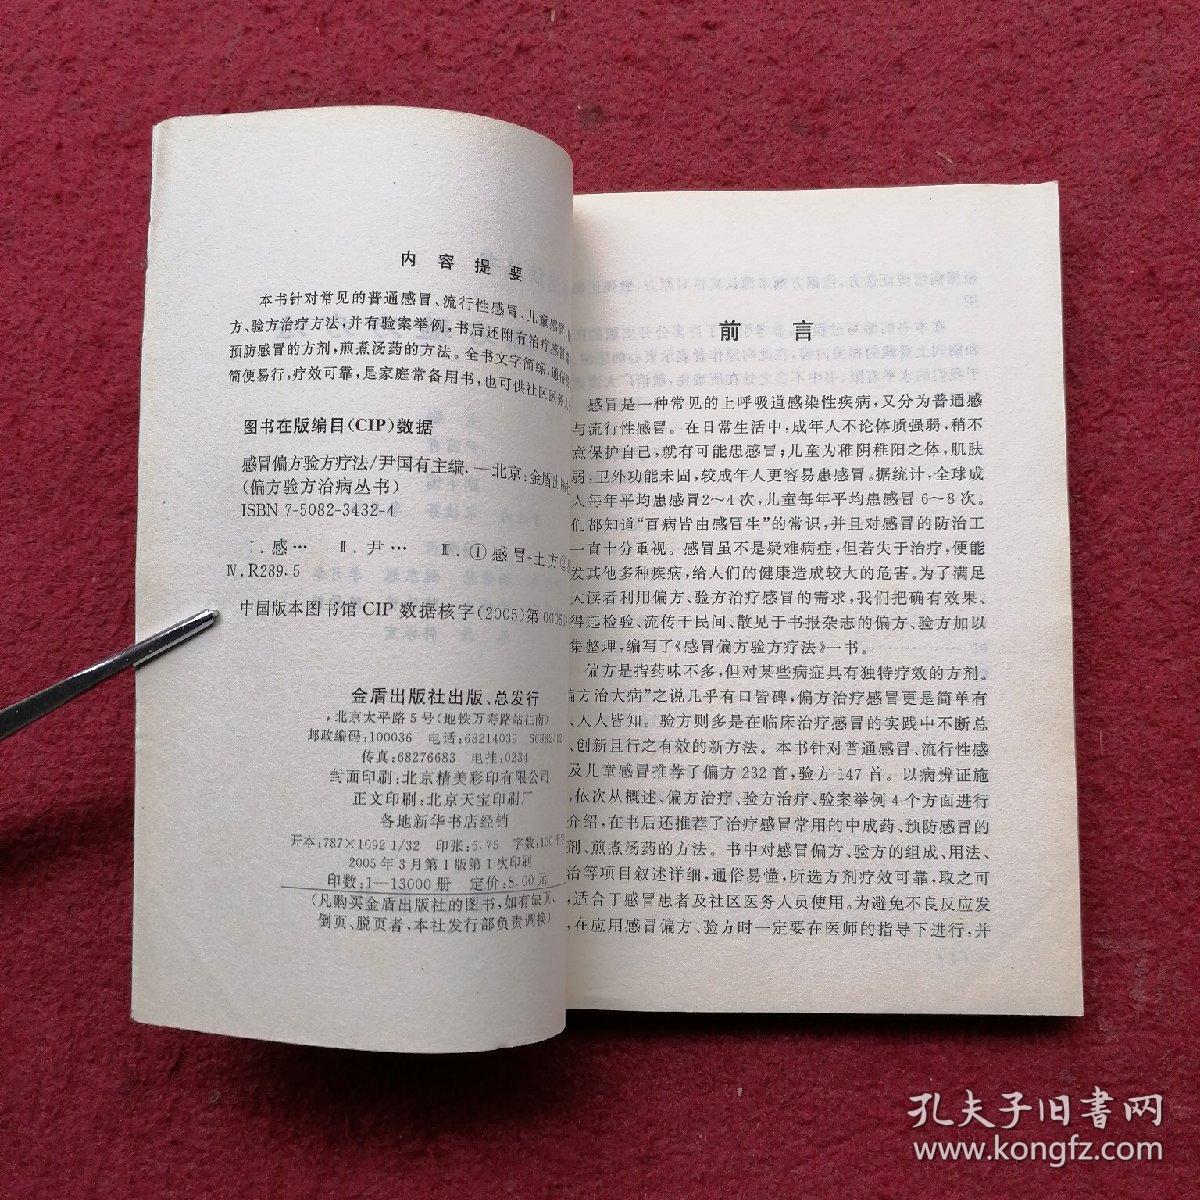 内 容 提 要
本书针对常见的普通感冒、流行性感冒、儿童感冒
方、验方治疗方法，并有验案举例，书后还附有治疗感冒
预防感冒的方剂，煎煮汤药的方法。全书文字简练，通俗
简便易行，疗效可靠，是家庭常备用书，也可供社区医务人
图书在版编目(CIP)数据
感冒偏方验方疗法/尹国有主编.—北京：金盾出
(偏方验方治病丛书)
ISBN 7-5082-3432-4
Ⅰ.感… Ⅱ.尹… Ⅲ.①感冒-土方②
Ⅳ.R289.5
中国版本图书馆 CIP 数据核字(2005)第
金盾出版社出版、总发行
北京太平路 5 号(地铁万寿路站往南)
邮政编码：100036 电话：68214039
传真：68276683 电挂：0234
封面印刷：北京精美彩印有限公司
正文印刷：北京天宝印刷厂
各地新华书店经销
开本：787×1092 1/32 印张：5.75 字数：
2005 年 3 月第 1 版第 1 次印刷
印数：1—13000 册 定价：8.00 元
(凡购买金盾出版社的图书，如有缺页、
倒页、脱页者，本社发行部负责调换)
前 言
感冒是一种常见的上呼吸道感染性疾病，又分为普通感
与流行性感冒。在日常生活中，成年人不论体质强弱，稍不
意保护自己，就有可能患感冒；儿童为稚阴稚阳之体，肌肤
弱，卫外功能未固，较成年人更容易患感冒。据统计，全球成
人每年平均患感冒2～4 次，儿童每年平均患感冒 6～8 次。
们都知道“百病皆由感冒生”的常识，并且对感冒的防治工
一直十分重视。感冒虽不是疑难病症，但若失于治疗，便能
发其他多种疾病，给人们的健康造成较大的危害。为了满足
大读者利用偏方、验方治疗感冒的需求，我们把确有效果、
得起检验、流传于民间、散见于书报杂志的偏方、验方加以
集整理，编写了《感冒偏方验方疗法》一书。
偏方是指药味不多，但对某些病症具有独特疗效的方剂。
偏方治大病”之说几乎有口皆碑，偏方治疗感冒更是简单有
、人人皆知。验方则多是在临床治疗感冒的实践中不断总
、创新且行之有效的新方法。本书针对普通感冒、流行性感
及儿童感冒推荐了偏方 232 首，验方 147 首。以病辨证施
，依次从概述、偏方治疗、验方治疗、验案举例 4 个方面进行
介绍，在书后还推荐了治疗感冒常用的中成药、预防感冒的
剂、煎煮汤药的方法。书中对感冒偏方、验方的组成、用法、
治等项目叙述详细，通俗易懂，所选方剂疗效可靠，取之可
，适合于感冒患者及社区医务人员使用。为避免不良反应发
，在应用感冒偏方、验方时一定要在医师的指导下进行，并
孔夫子旧书网
www.kongfz.com